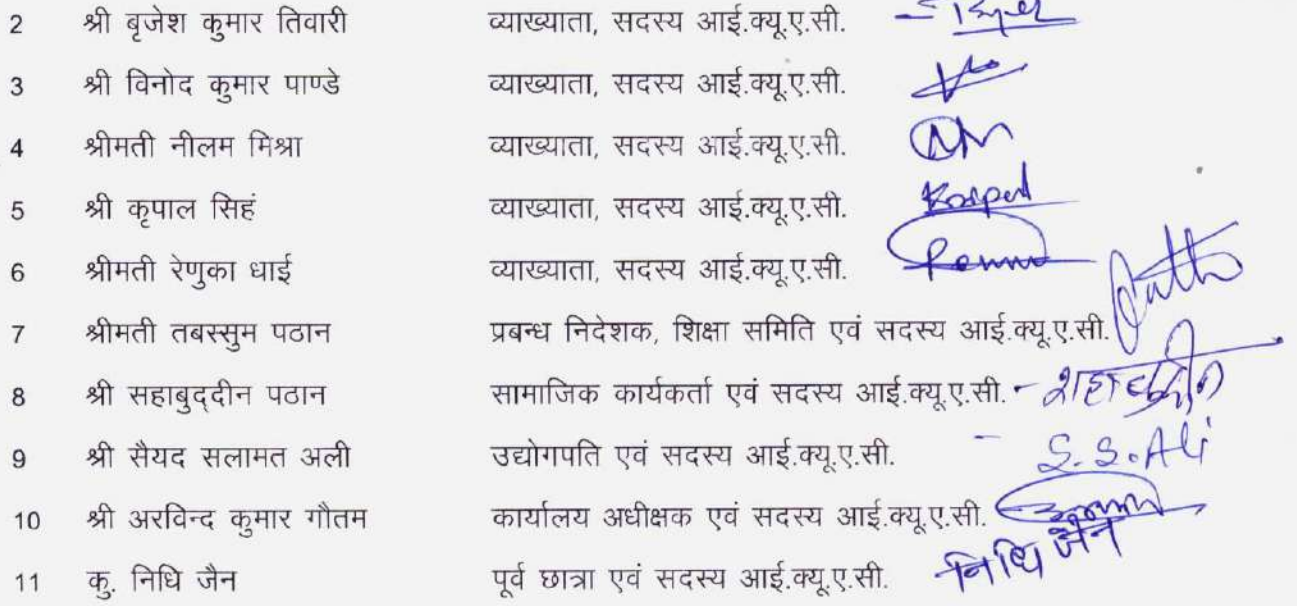 2 श्री बृजेश कुमार तिवारी व्याख्याता, सदस्य आई.क्यू.ए.सी.
3 श्री विनोद कुमार पाण्डे व्याख्याता, सदस्य आई.क्यू.ए.सी.
4 श्रीमती नीलम मिश्रा व्याख्याता, सदस्य आई.क्यू.ए.सी.
5 श्री कृपाल सिहं व्याख्याता, सदस्य आई.क्यू.ए.सी.
6 श्रीमती रेणुका धाई व्याख्याता, सदस्य आई.क्यू.ए.सी.
7 श्रीमती तबस्सुम पठान प्रबन्ध निदेशक, शिक्षा समिति एवं सदस्य आई.क्यू.ए.सी.
8 श्री सहाबुद्दीन पठान सामाजिक कार्यकर्ता एवं सदस्य आई.क्यू.ए.सी.
9 श्री सैयद सलामत अली उद्योगपति एवं सदस्य आई.क्यू.ए.सी. - S. S. Ali
10 श्री अरविन्द कुमार गौतम कार्यालय अधीक्षक एवं सदस्य आई.क्यू.ए.सी.
11 कु. निधि जैन पूर्व छात्रा एवं सदस्य आई.क्यू.ए.सी. निधि जैन